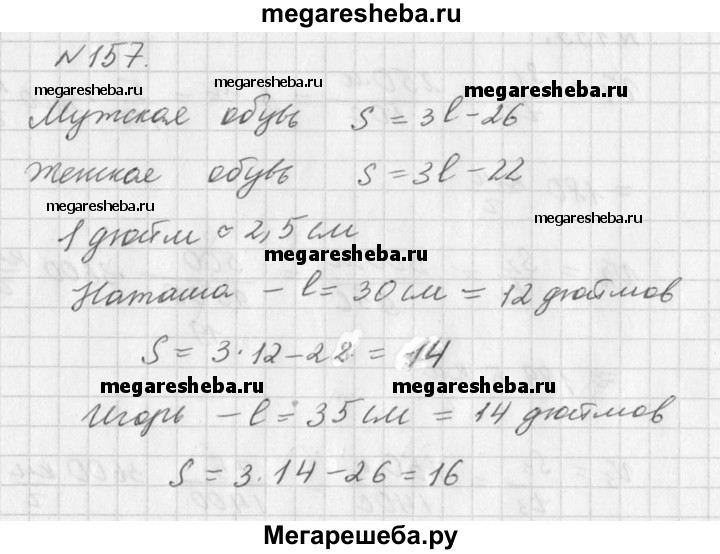 megaresheba.ru
№157.
megaresheba.ru megaresheba.ru megaresheba.ru
Мужская обувь S = 3l - 26
Женская обувь S = 3l - 22
megaresheba.ru megaresheba.ru
1 дюйм ≈ 2,5 см
megaresheba.ru
Наташа - l = 30 см = 12 дюймов
S = 3·12 - 22 = 14
megaresheba.ru megaresheba.ru
Игорь - l = 35 см = 14 дюймов
S = 3·14 - 26 = 16
Мегарешеба.ру